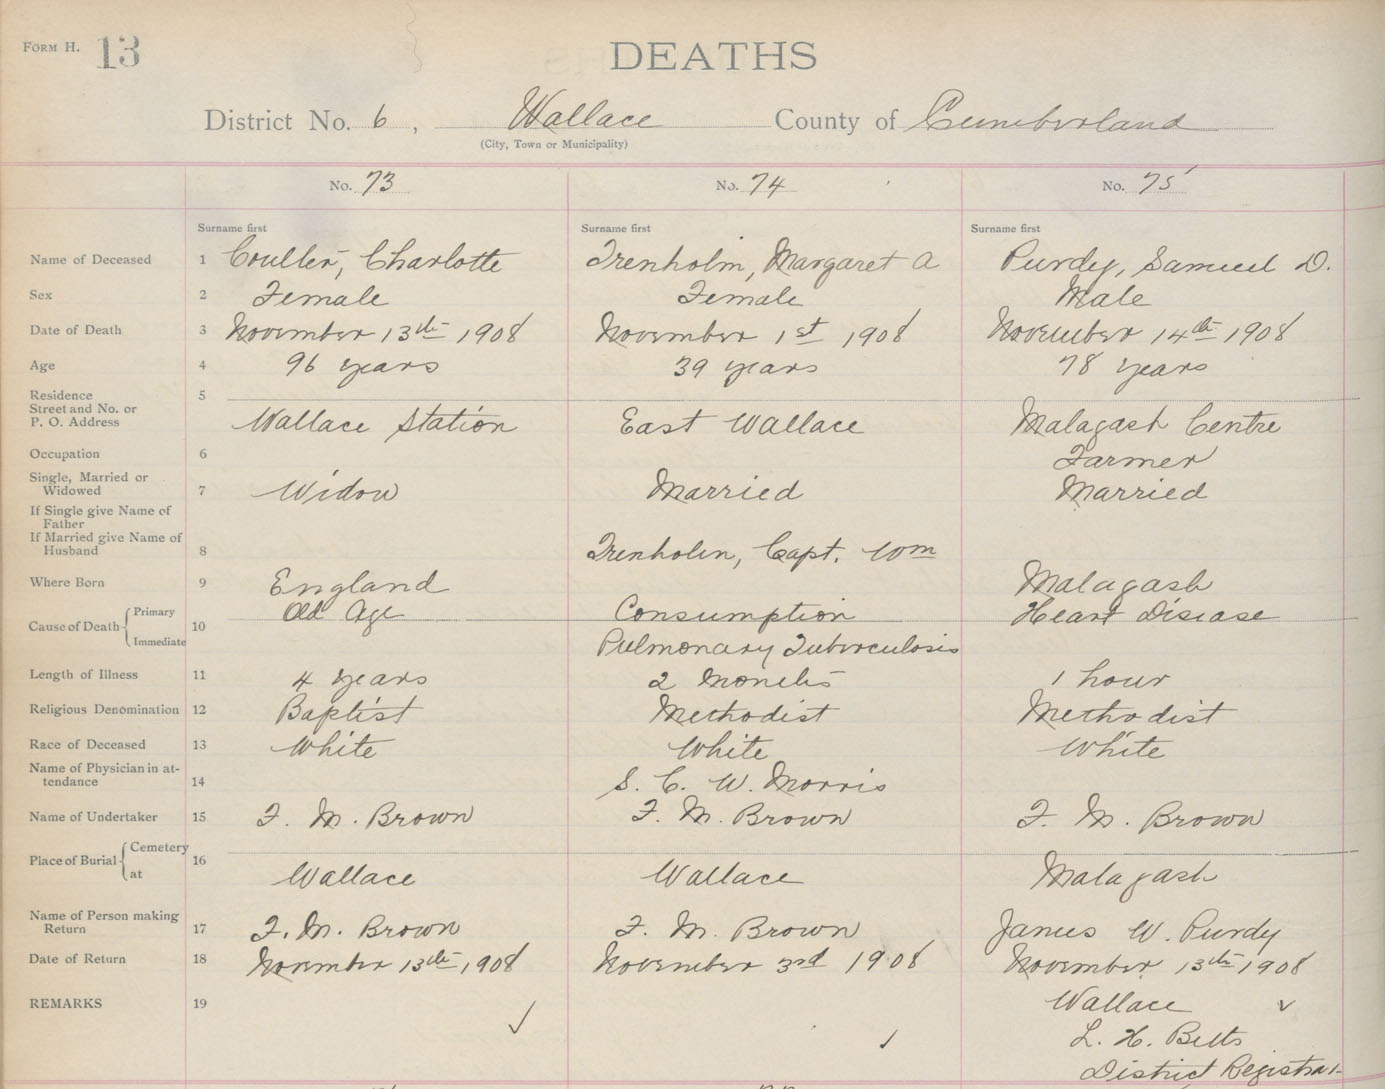 FORM H. 13
DEATHS
District No. 6, Wallace County of Cumberland
(City, Town or Municipality)
No. 73 No. 74 No. 75
Surname first Surname first Surname first
Name of Deceased 1 Coulter, Charlotte Trenholm, Margaret A Purdy, Samuel D.
Sex 2 Female Female Male
Date of Death 3 November 13th 1908 November 1st 1908 November 14th 1908
Age 4 96 years 39 years 78 years
Residence 5
Street and No. or
P. O. Address Wallace Station East Wallace Malagash Centre
Occupation 6 Farmer
Single, Married or
Widowed 7 Widow Married Married
If Single give Name of
Father
If Married give Name of
Husband 8 Trenholm, Capt. Wm
Where Born 9 England Malagash
Cause of Death 10 Primary Old Age Consumption Heart Disease
Immediate Pulmonary Tuberculosis
Length of Illness 11 4 years 2 Months 1 hour
Religious Denomination 12 Baptist Methodist Methodist
Race of Deceased 13 White White White
Name of Physician in at-
tendance 14 S. C. W. Morris
Name of Undertaker 15 F. M. Brown F. M. Brown F. M. Brown
Place of Burial 16 Cemetery
at Wallace Wallace Malagash
Name of Person making
Return 17 F. M. Brown F. M. Brown James W. Purdy
Date of Return 18 November 13th 1908 November 3rd 1908 November 13th 1908
REMARKS 19 Wallace
L. H. Betts
District Registrar